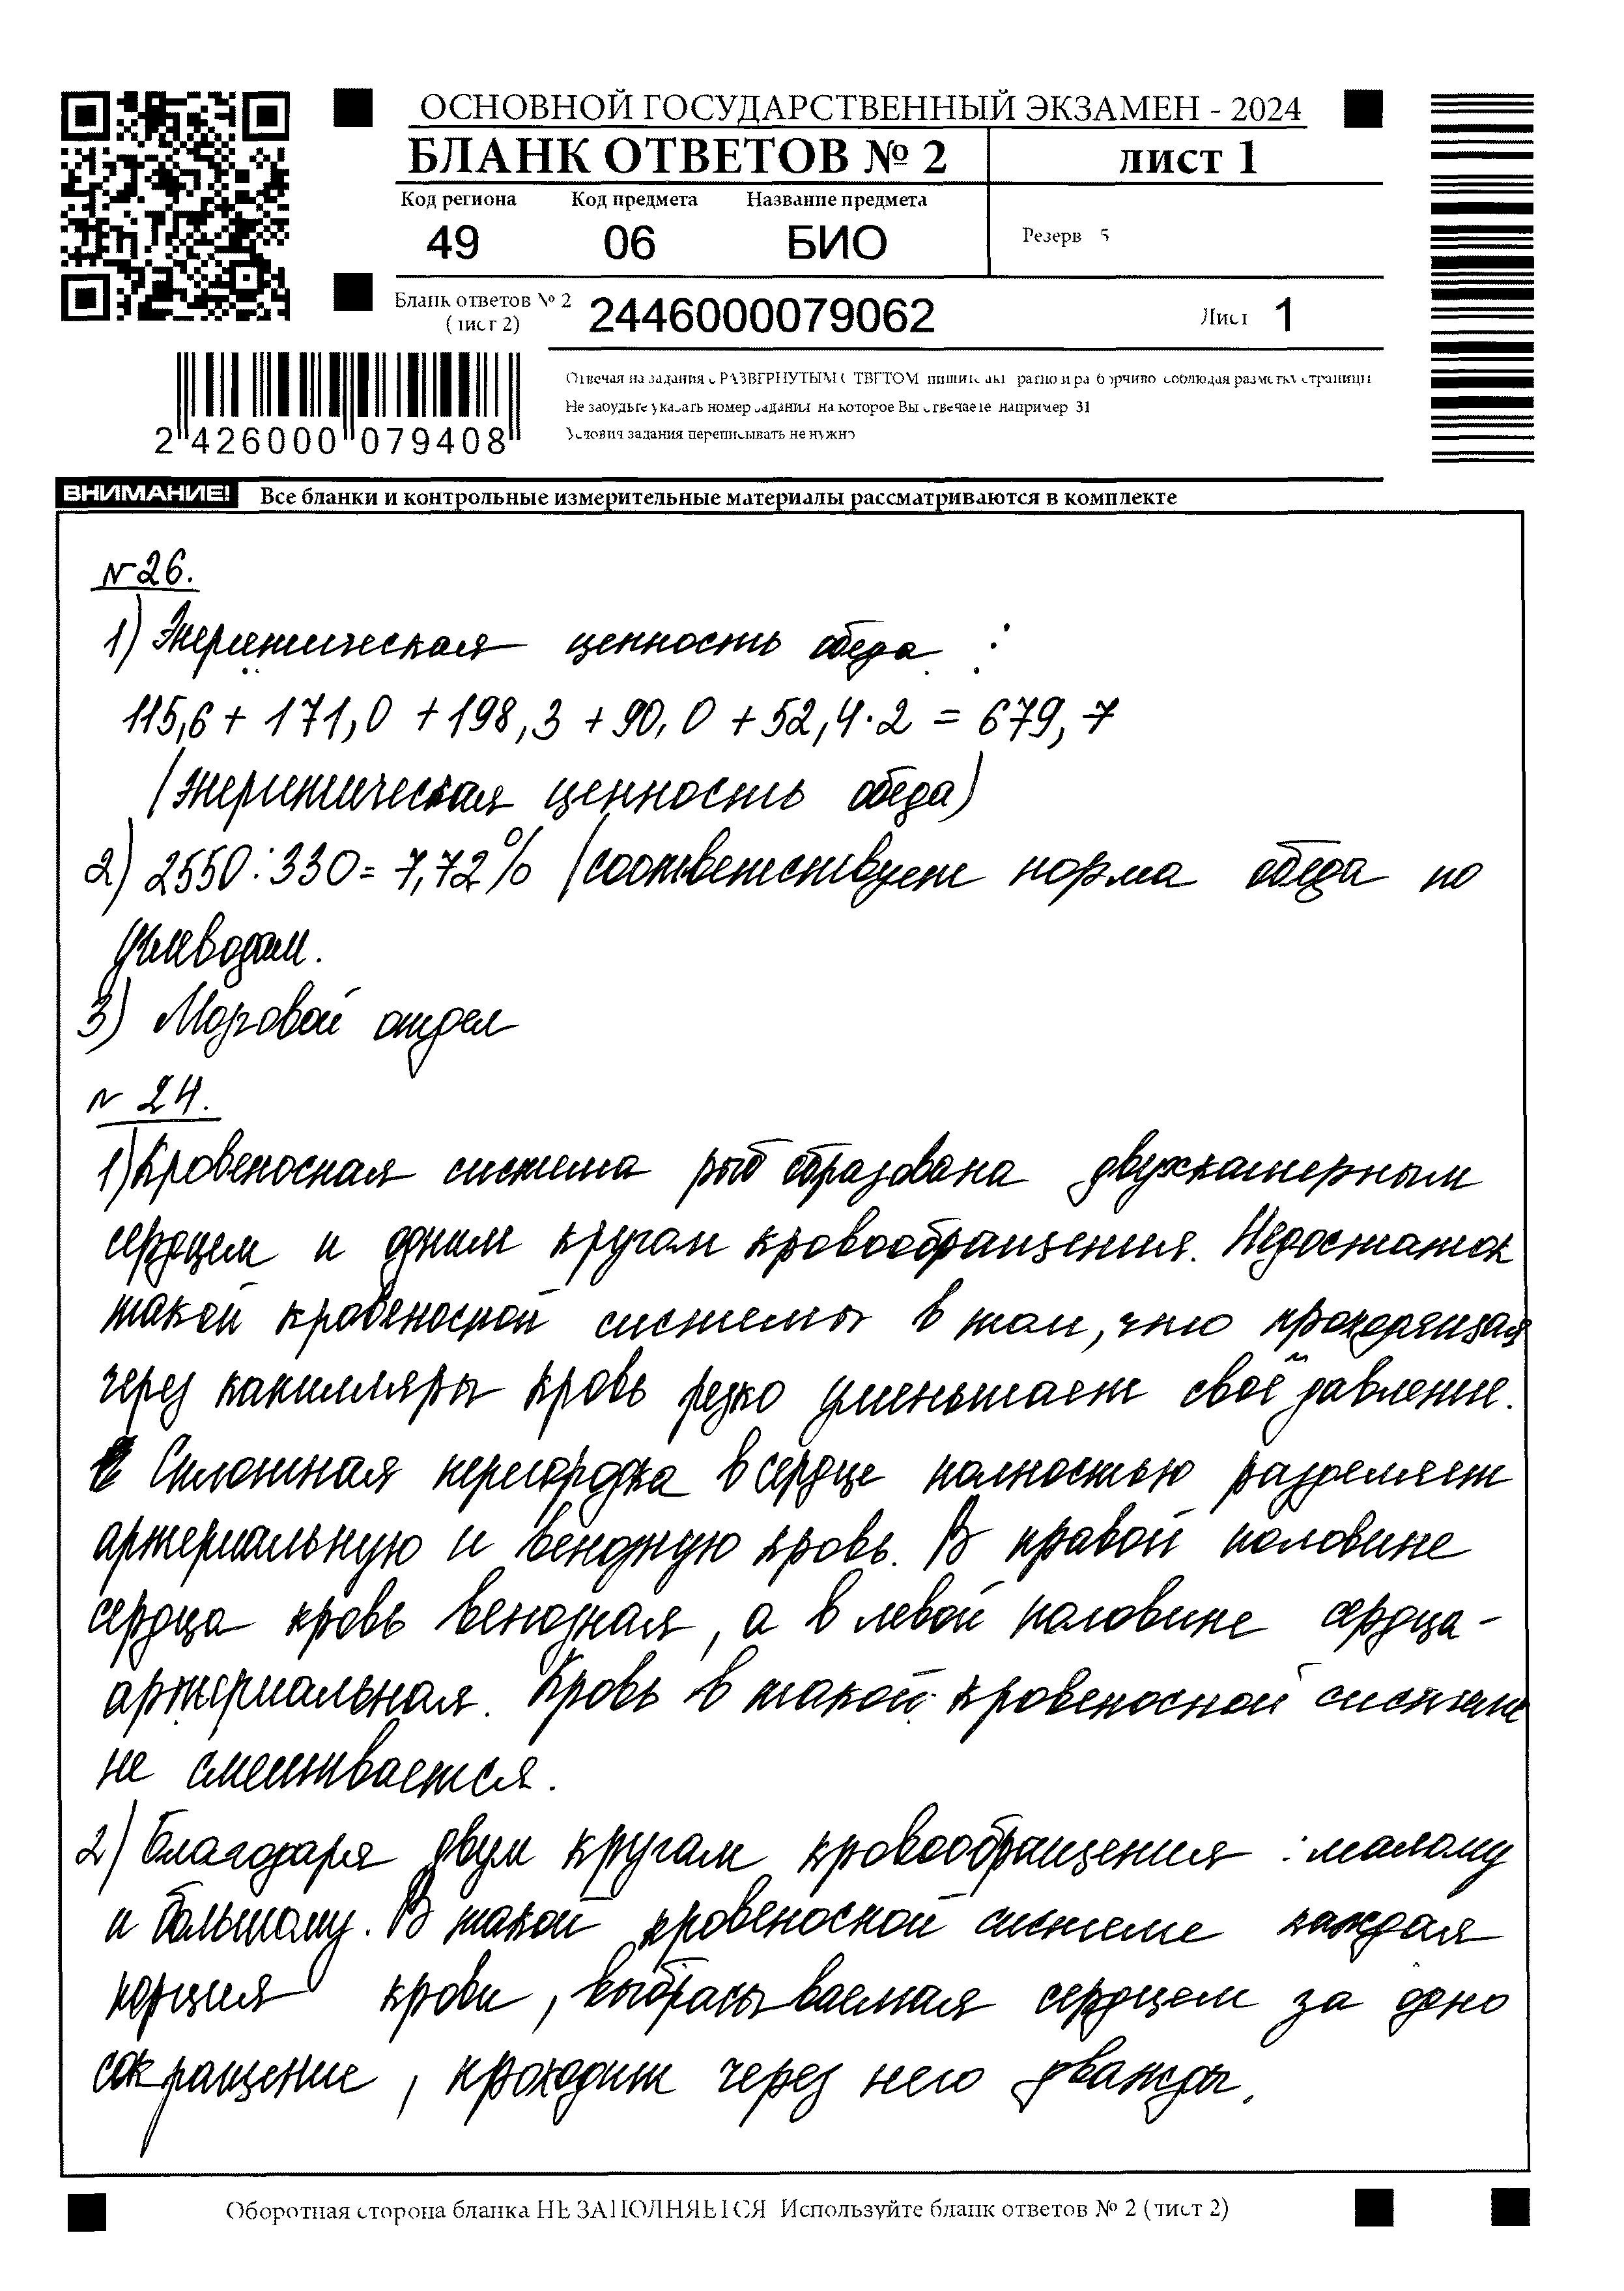 ОСНОВНОЙ ГОСУДАРСТВЕННЫЙ ЭКЗАМЕН - 2024
БЛАНК ОТВЕТОВ № 2
лист 1
Код региона Код предмета Название предмета
49 06 БИО
Резерв 5
Бланк ответов № 2
(лист 2)
2446000079062
Лист 1
2 426000 079408
Отвечая на задания с РАЗВЕРНУТЫМ ОТВЕТОМ пишите аккуратно и разборчиво соблюдая разметку страницы
Не забудьте указать номер задания на которое Вы отвечаете например 31
Условия задания переписывать не нужно
ВНИМАНИЕ! Все бланки и контрольные измерительные материалы рассматриваются в комплекте
№26.
1) Энергетическая ценность обеда :
115,6 + 171,0 + 198,3 + 90,0 + 52,4·2 = 679,7
(энергетическая ценность обеда)
2) 2550:330=7,72% (соответствует норма обеда по
углеводам.
3) Мозговой отдел
№ 24.
1) Кровеносная система рыб образована двухкамерным
сердцем и одним кругом кровообращения. Недостаток
такой кровеносной системы в том, что проходящая
через капилляры кровь резко уменьшает своё давление.
Сплошная перегородка в сердце полностью разделяет
артериальную и венозную кровь. В правой половине
сердца кровь венозная, а в левой половине сердца -
артериальная. Кровь в такой кровеносной системе
не смешивается.
2) Благодаря двум кругам кровообращения : малому
и большому. В такой кровеносной системе каждая
порция крови, выбрасываемая сердцем за одно
сокращение, проходит через него дважды.
Оборотная сторона бланка НЕ ЗАПОЛНЯЕТСЯ Используйте бланк ответов № 2 (лист 2)